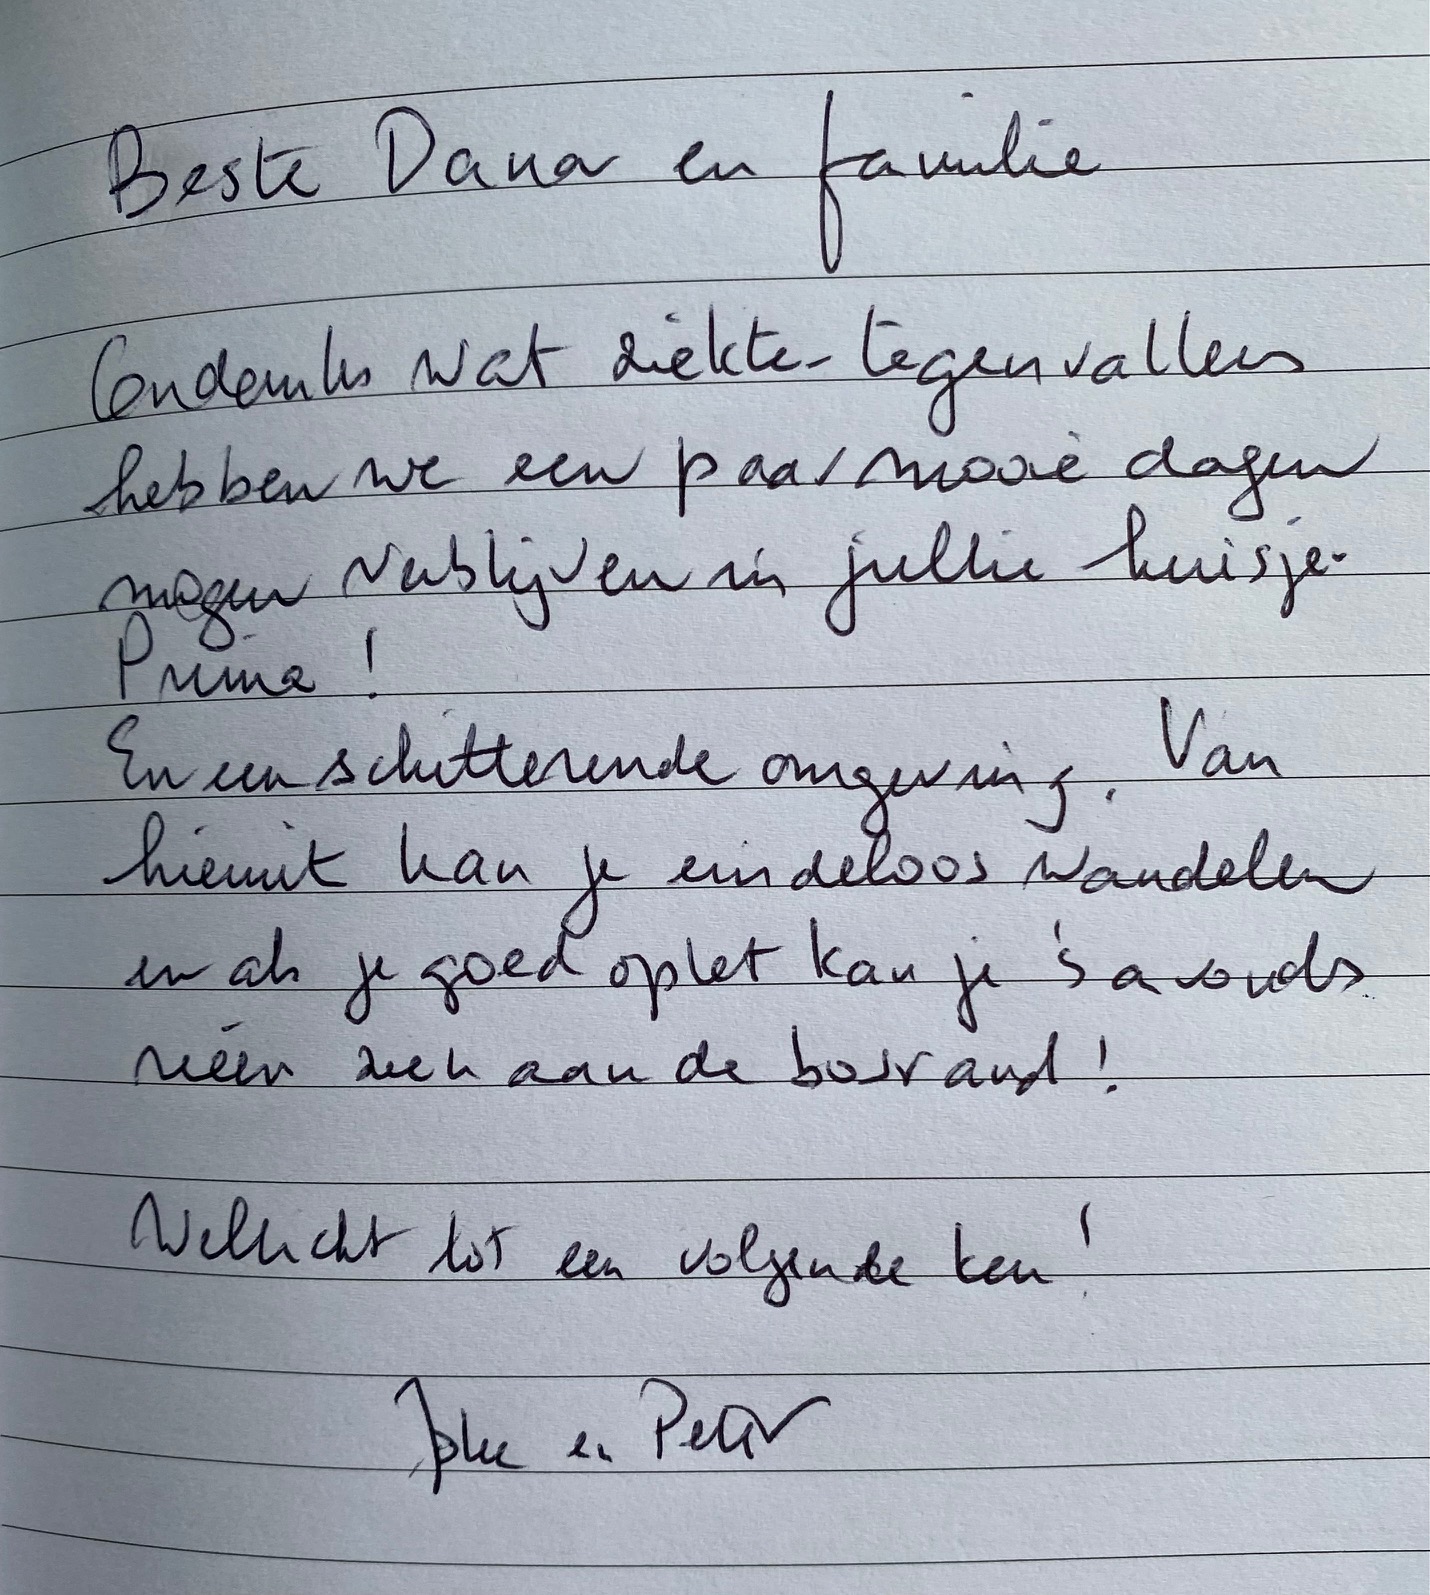 Beste Dana en familie
Ondanks wat ziekte-tegenvallers
hebben we een paar mooie dagen
mogen verblijven in jullie huisje.
Prima!
En een schitterende omgeving. Van
hieruit kan je eindeloos wandelen
en als je goed oplet kan je 's avonds
reeën zien aan de bosrand!
Wellicht tot een volgende keer!
en Peter